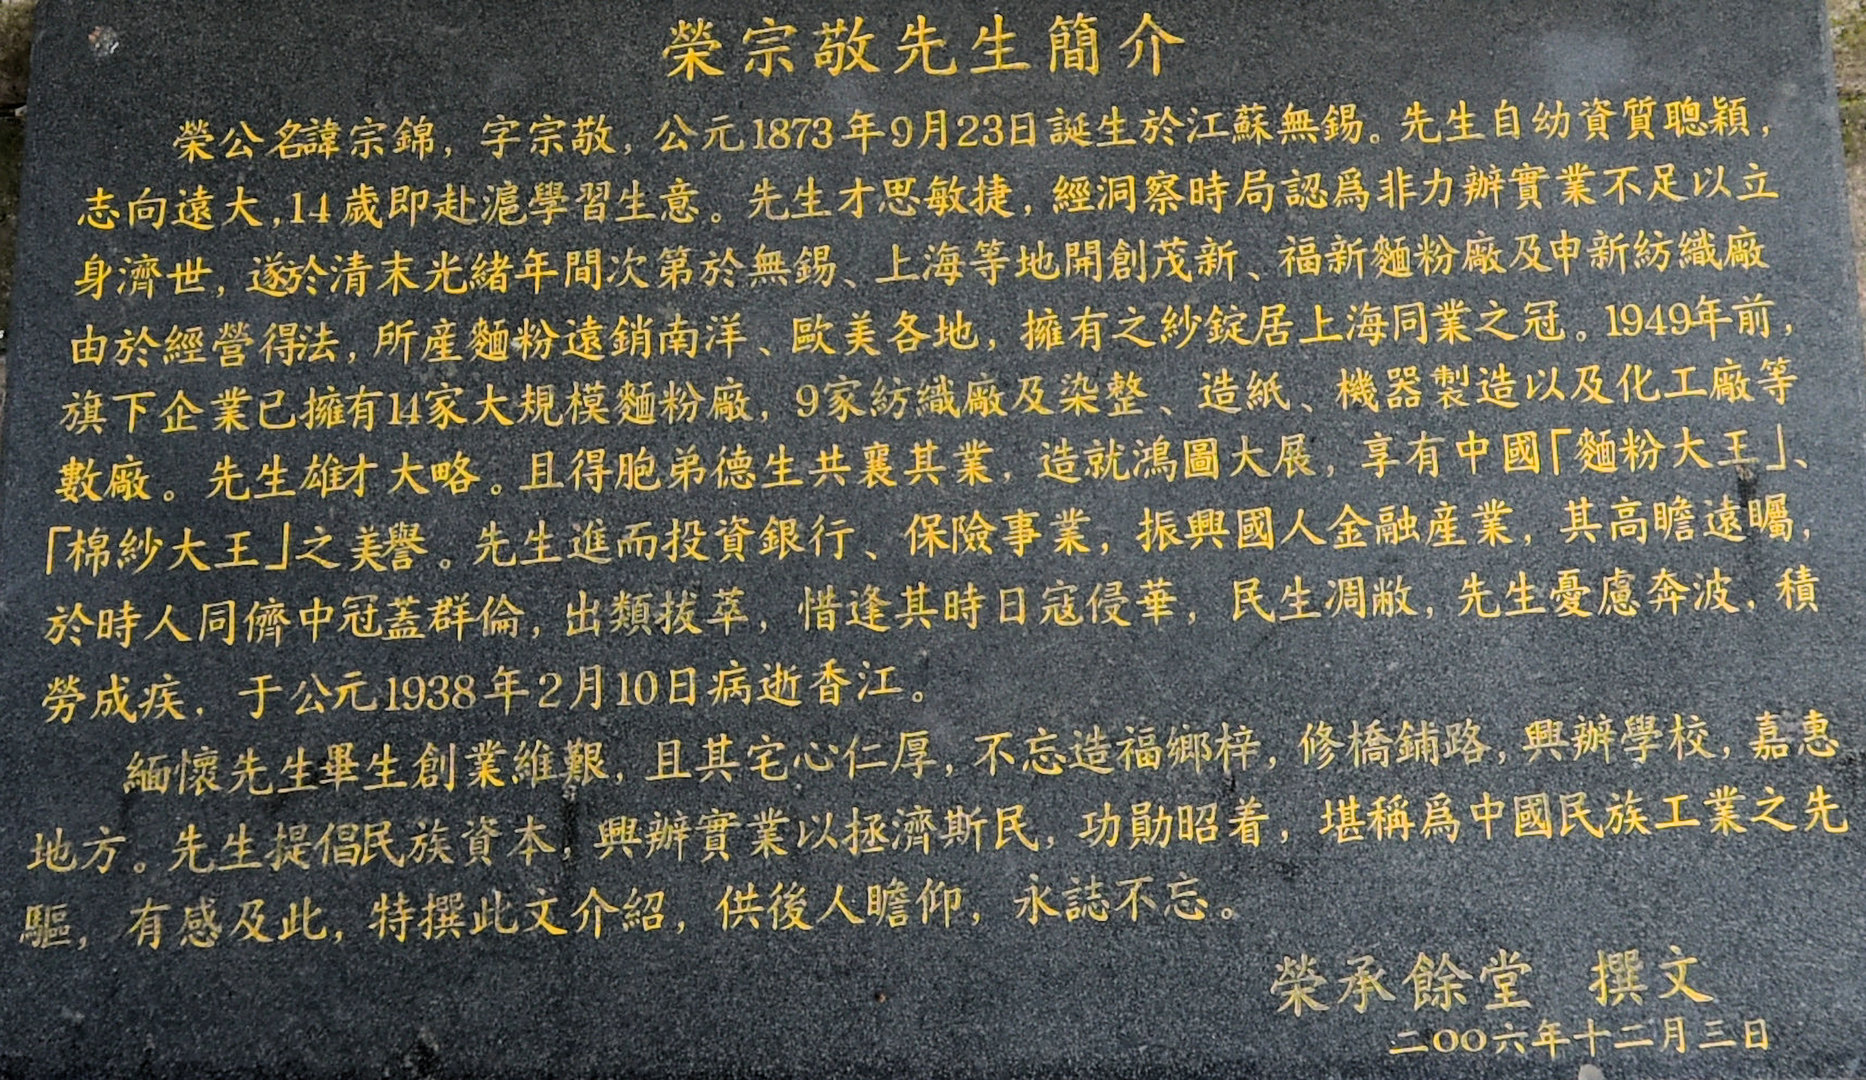 榮宗敬先生簡介
榮公名諱宗錦，字宗敬，公元1873年9月23日誕生於江蘇無錫。先生自幼資質聰穎，
志向遠大，14歲即赴滬學習生意。先生才思敏捷，經洞察時局認爲非力辦實業不足以立
身濟世，遂於清末光緒年間次第於無錫、上海等地開創茂新、福新麵粉廠及申新紡織廠
由於經營得法，所産麵粉遠銷南洋、歐美各地，擁有之紗錠居上海同業之冠。1949年前，
旗下企業已擁有14家大規模麵粉廠，9家紡織廠及染整、造紙、機器製造以及化工廠等
數廠。先生雄才大略。且得胞弟德生共襄其業，造就鴻圖大展，享有中國「麵粉大王」、
「棉紗大王」之美譽。先生進而投資銀行、保險事業，振興國人金融産業，其高瞻遠矚，
於時人同儕中冠蓋群倫，出類拔萃，惜逢其時日寇侵華，民生凋敝，先生憂慮奔波，積
勞成疾，于公元1938年2月10日病逝香江。
緬懷先生畢生創業維艱，且其宅心仁厚，不忘造福鄉梓，修橋鋪路，興辦學校，嘉惠
地方。先生提倡民族資本，興辦實業以拯濟斯民，功勛昭着，堪稱爲中國民族工業之先
驅，有感及此，特撰此文介紹，供後人瞻仰，永誌不忘。
榮承餘堂　撰文
二〇〇六年十二月三日